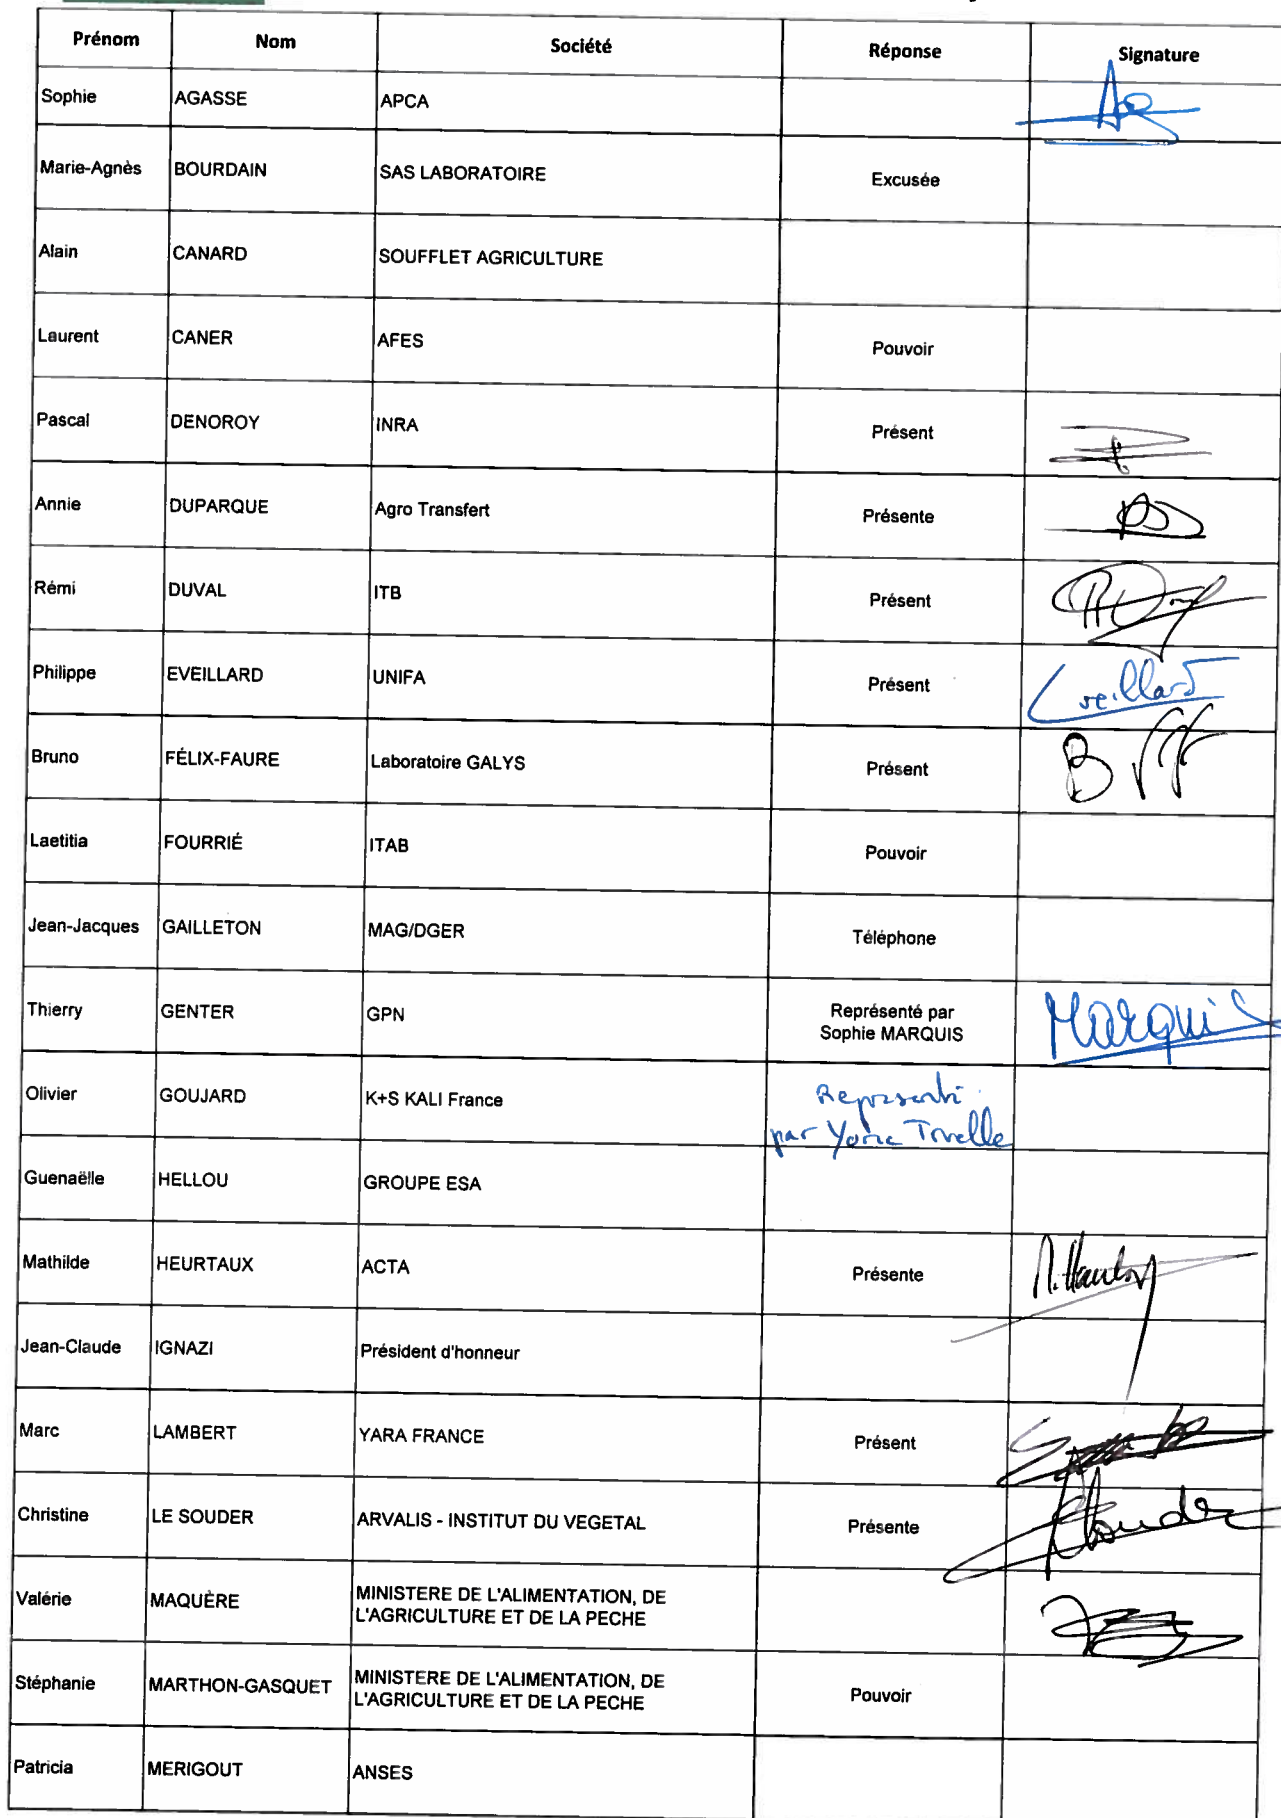 Prénom Nom Société Réponse Signature
Sophie AGASSE APCA
Marie-Agnès BOURDAIN SAS LABORATOIRE Excusée
Alain CANARD SOUFFLET AGRICULTURE
Laurent CANER AFES Pouvoir
Pascal DENOROY INRA Présent
Annie DUPARQUE Agro Transfert Présente
Rémi DUVAL ITB Présent
Philippe EVEILLARD UNIFA Présent
Bruno FÉLIX-FAURE Laboratoire GALYS Présent
Laetitia FOURRIÉ ITAB Pouvoir
Jean-Jacques GAILLETON MAG/DGER Téléphone
Thierry GENTER GPN Représenté par
Sophie MARQUIS Marquis
Olivier GOUJARD K+S KALI France Représenté
par Trvelle
Guenaëlle HELLOU GROUPE ESA
Mathilde HEURTAUX ACTA Présente
Jean-Claude IGNAZI Président d'honneur
Marc LAMBERT YARA FRANCE Présent
Christine LE SOUDER ARVALIS - INSTITUT DU VEGETAL Présente
Valérie MAQUÈRE MINISTERE DE L'ALIMENTATION, DE
L'AGRICULTURE ET DE LA PECHE
Stéphanie MARTHON-GASQUET MINISTERE DE L'ALIMENTATION, DE
L'AGRICULTURE ET DE LA PECHE Pouvoir
Patricia MERIGOUT ANSES